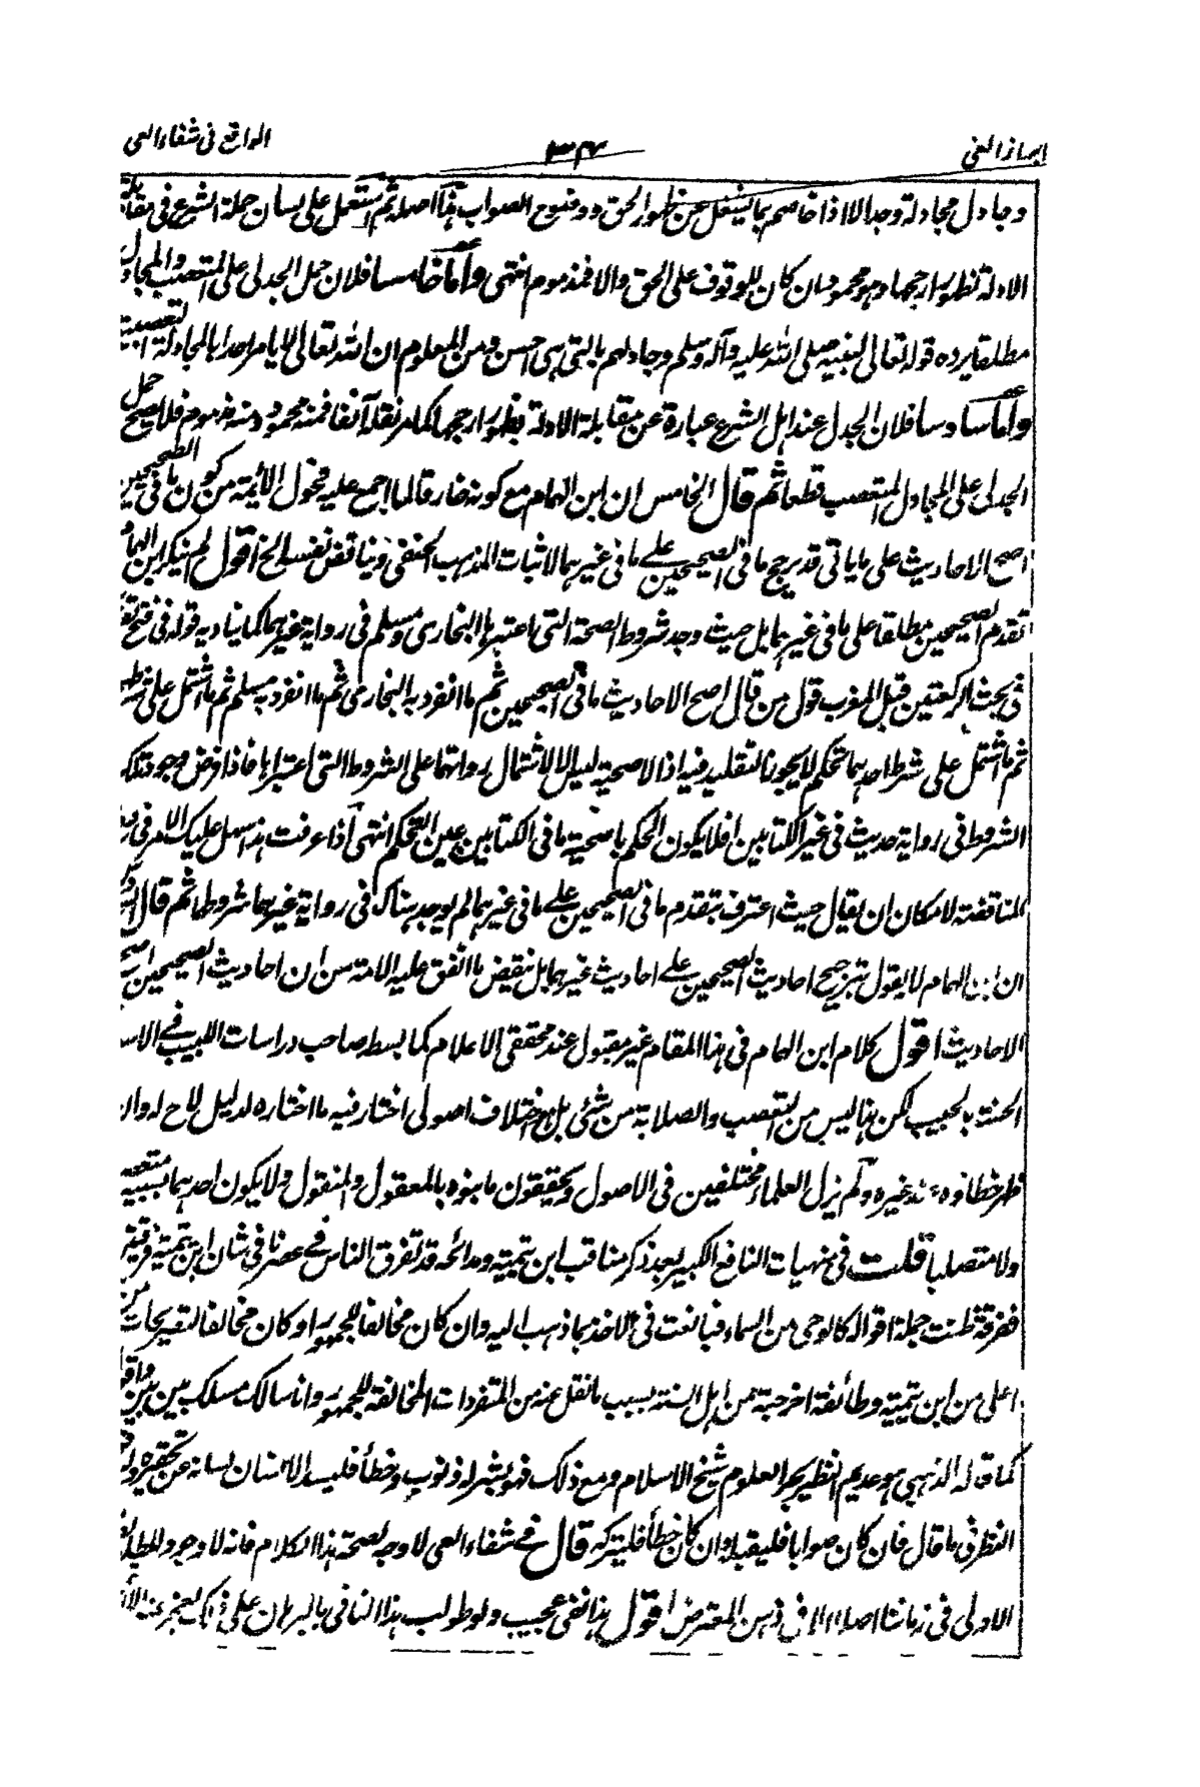 ابراز الغی ٣٤ الواقع فی شفاء العی
وجادل مجادلة وجدالا اذا خاصم بما یشغل عن ظهور الحق ووضوح الصواب هذا اصله ثم استعمل علی لسان حملة الشرع فی مقابلة
الادلة لظهور ارجحها وهو محمود ان کان للوقوف علی الحق والا فمذموم انتهی واما خامسا فلان حمل الجدلی علی المتعصب والمجادل
مطلقا یرده قوله تعالی لنبیه صلی الله علیه وآله وسلم وجادلهم بالتی هی احسن ومن المعلوم ان الله تعالی لا یامر احدا بالمجادلة التعصبیة
واما سادسا فلان الجدل عند اهل الشرع عبارة عن مقابلة الادلة بظهور ارجحها کما مر نقله آنفا فمنه محمود ومنه مذموم فلا یصح حمل
الجدلی علی المجادل المتعصب قطعا ثم قال الخامس ان ابن الهمام مع کونه خارقا لما اجمع علیه فحول الائمة من کون ما فی الصحیحین
اصح الاحادیث علی ما یاتی قد یرجح ما فی الصحیحین علے ما فی غیرهما لاثبات المذهب الحنفی ویناقض نفسه الخ اقول لم ینکر ابن الهمام
تقدم الصحیحین مطلقا علی ما فی غیرهما بل حیث وجد شروط الصحة التی اعتبرها البخاری ومسلم فی روایة غیرهما کما ینادیه قوله فی فتح
فی بحث الرکعتین قبل المغرب قول من قال اصح الاحادیث ما فی الصحیحین ثم ما انفرد به البخاری ثم ما انفرد به مسلم ثم ما اشتمل علی شرطهما
ثم ما اشتمل علی شرط احدهما تحکم لا یجوز التقلید فیه اذ الاصحیة لیس الا لاشتمال رواتهما علی الشروط التی اعتبراها فاذا فرض وجود تلک
الشروط فی روایة حدیث فی غیر الکتابین افلا یکون الحکم باصحیة ما فی الکتابین عین التحکم انتهی اذا عرفت هذا سهل علیک الامر فی
المناقضة لامکان ان یقال حیث اعترف بتقدم ما فی الصحیحین علے ما فی غیرهما لم یوجد هناک فی روایة غیرهما شروطها ثم قال
ان ابن الهمام لا یقول بترجیح احادیث الصحیحین علے احادیث غیرهما بل نقیض ما اتفق علیه الامة من ان احادیث الصحیحین اصح
الاحادیث اقول کلام ابن الهمام فی هذا المقام غیر مقبول عند محققی الاعلام کما بسطه صاحب دراسات اللبیب فے الاسوة
الحسنة بالحبیب لکن هذا لیس من التعصب والصلابة من شئی بل هو اختلاف اصولی اختار فیه ما اختاره لدلیل لاح له وان
ظهر خطاؤه عند غیره ولم یزل العلماء مختلفین فی الاصول ویحققون ما بنوه بالمعقول والمنقول ولا یکون احدهما بسببه متعصبا
ولا متصلبا قلت فی منهیات النافع الکبیر بعد ذکر مناقب ابن تیمیة ومدائحه قد تفرق الناس فے عصرنا فی شان ابن تیمیة فرقتین
ففرقة ظنت جملة اقواله کالوحی من السماء فبالغت فی الاخذ بما ذهب الیه وان کان مخالفا للجمهور او کان مخالفا لتصریحات من
اعلی من ابن تیمیة وطائفة اخرجته من اهل السنة بسبب ما نقل عنه من المتفردات المخالفة للجمهور وانا سالک مسلک بین بین واقول
کما قاله الذهبی هو عدیم النظیر بحر العلوم شیخ الاسلام ومع ذلک فهو بشر له ذنوب وخطأ فلیسد الانسان لسانه عن تحقیره
النظر فی ما قال فان کان صوابا فلیقبله وان کان خطأ فلیترکه قال فے شفاء العی لا وجه لصحة هذا الکلام فانه لا وجود للطائفة
الاولی فی زماننا اصلا الا فی ذهن المعترض اقول هذا نفی عجیب ولو طولب هذا النافی بالبرهان علی ذلک لعجز عنه